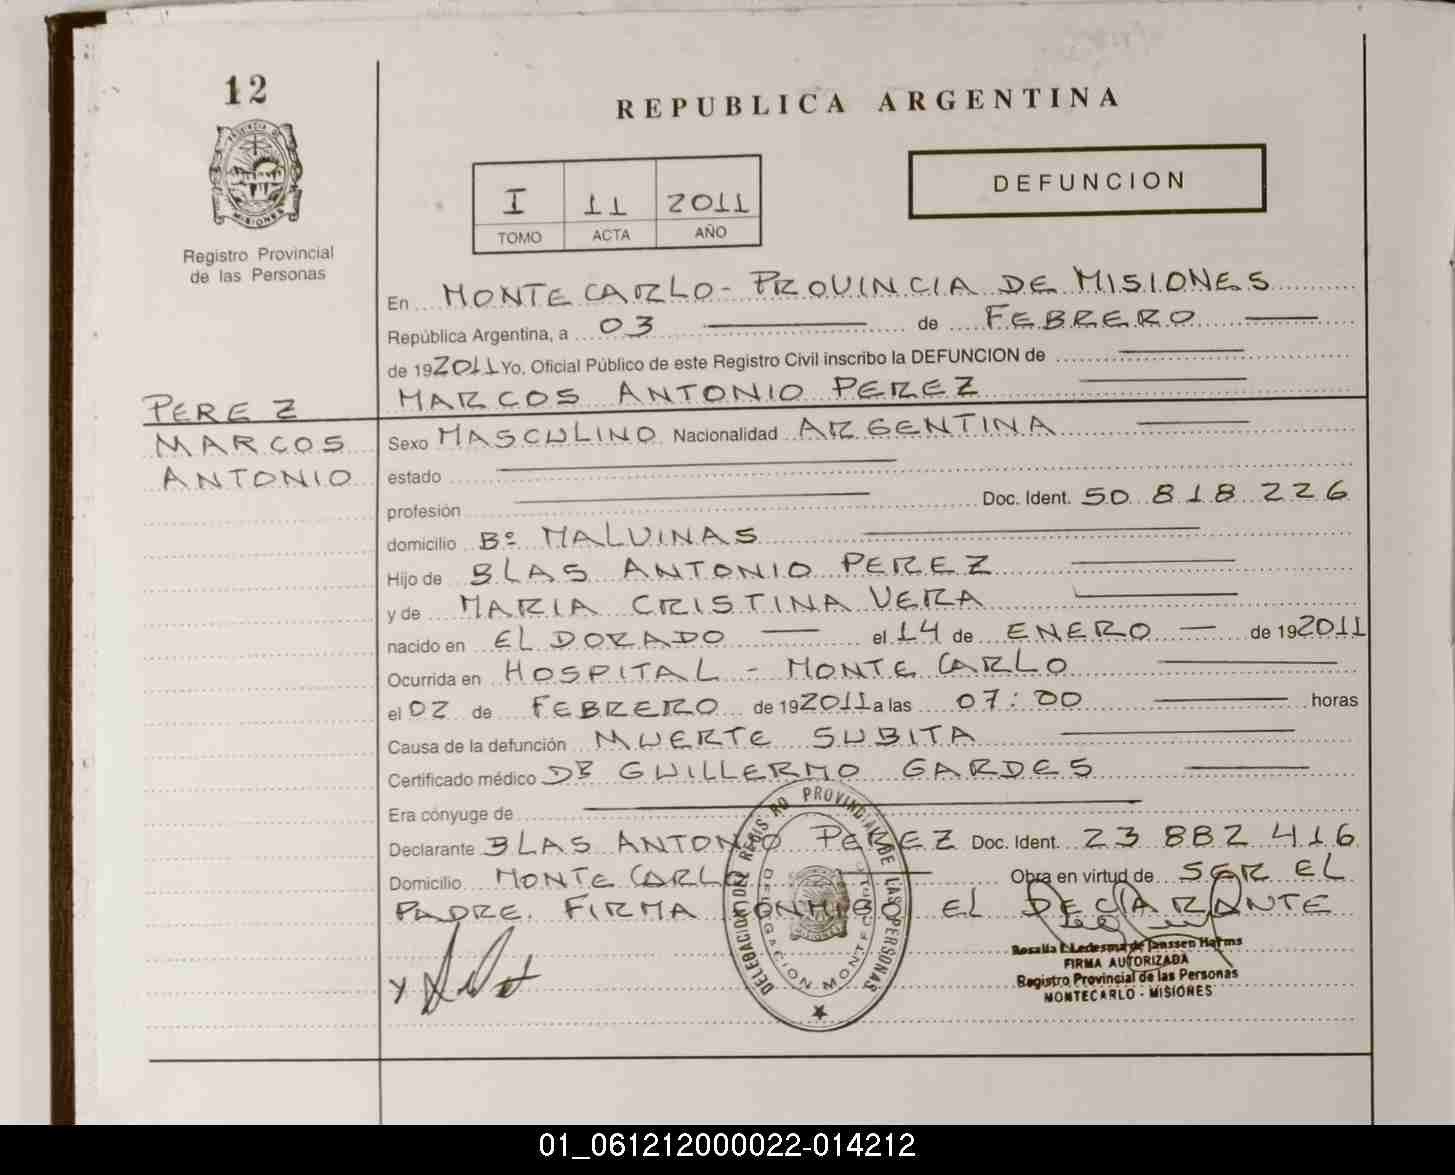 12
REPUBLICA ARGENTINA
PROVINCIA DE
MISIONES
Registro Provincial
de las Personas
DEFUNCION
I 11 2011
TOMO ACTA AÑO
En MONTECARLO - PROVINCIA DE MISIONES
República Argentina, a 03 de FEBRERO
de 192011 Yo, Oficial Público de este Registro Civil inscribo la DEFUNCION de
MARCOS ANTONIO PEREZ
PEREZ
MARCOS
ANTONIO
Sexo MASCULINO Nacionalidad ARGENTINA
estado
profesión Doc. Ident. 50 818 226
domicilio Bº MALVINAS
Hijo de BLAS ANTONIO PEREZ
y de MARIA CRISTINA VERA
nacido en EL DORADO el 14 de ENERO de 192011
Ocurrida en HOSPITAL - MONTE CARLO
el 02 de FEBRERO de 192011 a las 07:00 horas
Causa de la defunción MUERTE SUBITA
Certificado médico DR GUILLERMO GARDES
Era cónyuge de
Declarante BLAS ANTONIO PEREZ Doc. Ident. 23 882 416
Domicilio MONTE CARLO Obra en virtud de SER EL
PADRE. FIRMA CONMIGO EL DECLARANTE
DELEGACION DEL REGISTRO PROVINCIAL DE LAS PERSONAS
DELEGACION MONTE
Rosalia L. Ledesma de Janssen Harms
FIRMA AUTORIZADA
Registro Provincial de las Personas
MONTECARLO - MISIONES
01_061212000022-014212